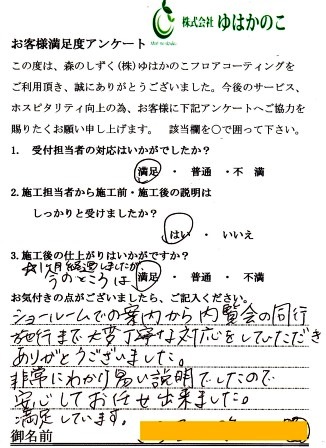 株式会社 ゆはかのこ
お客様満足度アンケート
この度は、森のしずく(株)ゆはかのこフロアコーティングを
ご利用頂き、誠にありがとうございました。今後のサービス、
ホスピタリティ向上の為、お客様に下記アンケートへご協力を
賜りたくお願い申し上げます。 該当欄を〇で囲って下さい。
1. 受付担当者の対応はいかがでしたか?
満足 ・ 普通 ・不 満
2. 施工担当者から施工前・施工後の説明は
しっかりと受けましたか?
はい ・ いいえ
3. 施工後の仕上がりはいかがですか?
1ヶ月経過しましたが、
今のところは
満足 ・ 普通 ・ 不 満
お気付きの点がございましたら、ご記入ください。
ショールームでの案内から内覧会の同行
施行まで大変丁寧な対応をしていただき
ありがとうございました。
非常にわかり易い説明でしたので
安心してお任せ出来ました。
満足しています。
御名前